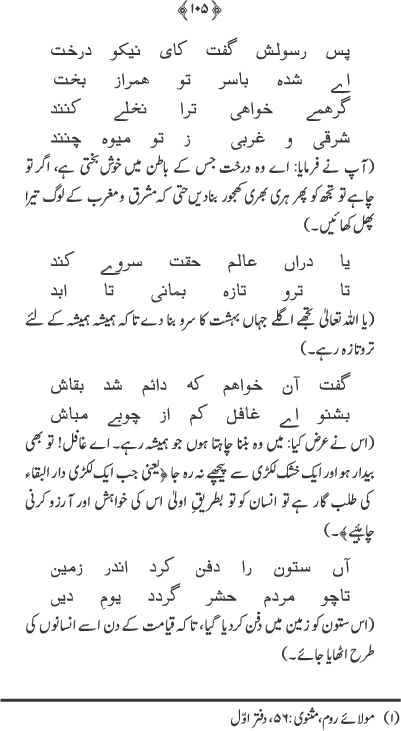 ﴿۱۰۵﴾
پس رسولش گفت کای نیکو درخت
اے شده باسر تو همراز بخت
گرهمے خواهی ترا نخلے کنند
شرقی و غربی ز تو میوه چنند
(آپ نے فرمایا: اے وہ درخت جس کے باطن میں خوش بختی ہے، اگر تو
چاہے تو تجھ کو پھر ہری بھری کھجور بنادیں حتی کہ مشرق و مغرب کے لوگ تیرا
پھل کھائیں۔)
یا دراں عالم حقت سروے کند
تا ترو تازه بمانی تا ابد
(یا اللہ تعالیٰ تجھے اگلے جہاں بہشت کا سرو بنا دے تا کہ ہمیشہ ہمیشہ کے لئے
تروتازہ رہے۔)
گفت آن خواهم که دائم شد بقاش
بشنو اے غافل کم از چوبے مباش
(اس نے عرض کیا: میں وہ بننا چاہتا ہوں جو ہمیشہ رہے۔ اے غافل! تو بھی
بیدار ہو اور ایک خشک لکڑی سے پیچھے نہ رہ جا ﴿یعنی جب ایک لکڑی دار البقاء
کی طلب گار ہے تو انسان کو تو بطریقِ اولیٰ اس کی خواہش اور آرزو کرنی
چاہئیے﴾۔)
آں ستون را دفن کرد اندر زمین
تاچو مردم حشر گردد یومِ دیں
(اس ستون کو زمین میں دفن کر دیا گیا، تاکہ قیامت کے دن اسے انسانوں کی
طرح اٹھایا جائے۔)
(۱) مولائے روم، مثنوی: ۵۶، دفتر اوّل